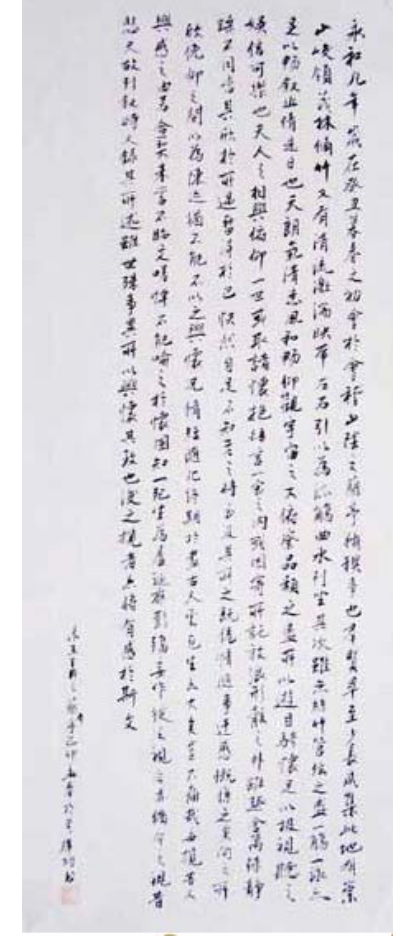 永和九年歲在癸丑暮春之初會於會稽山陰之蘭亭脩禊事也羣賢畢至少長咸集此地有崇
山峻領茂林脩竹又有清流激湍映帶左右引以為流觴曲水列坐其次雖無絲竹管絃之盛一觴一詠亦
足以暢敘幽情是日也天朗氣清惠風和暢仰觀宇宙之大俯察品類之盛所以遊目騁懷足以極視聽之
娛信可樂也夫人之相與俯仰一世或取諸懷抱悟言一室之內或因寄所託放浪形骸之外雖趣舍萬殊靜
躁不同當其欣於所遇暫得於己快然自足不知老之將至及其所之既倦情隨事遷感慨係之矣向之所
欣俛仰之間以為陳迹猶不能不以之興懷況脩短隨化終期於盡古人云死生亦大矣豈不痛哉每攬昔人
興感之由若合契未嘗不臨文嗟悼不能喻之於懷固知一死生為虛誕齊彭殤妄作後之視今亦猶今之視昔
悲夫故列敘時人錄其所述雖世殊事異所以興懷其致也後之攬者亦將有感於斯文
王羲之蘭亭己卯